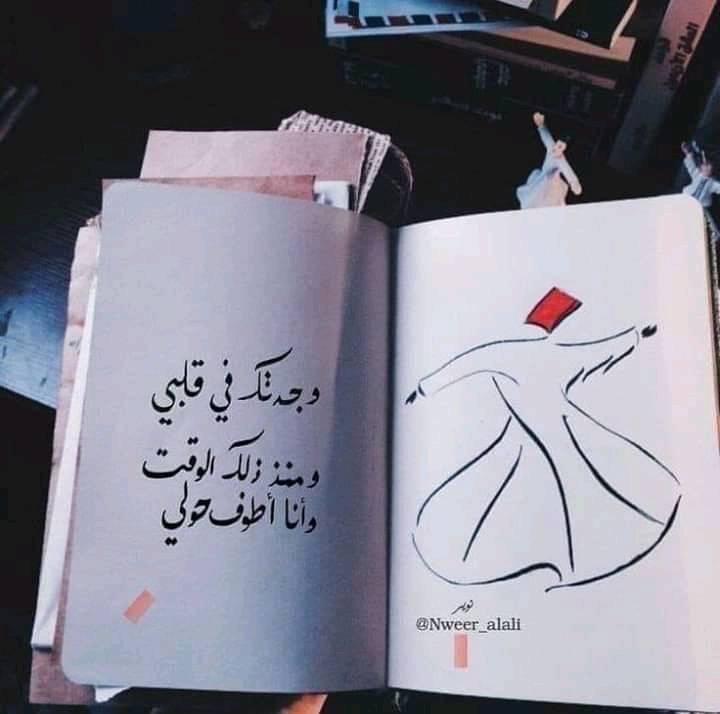 وجدتك في قلبي
ومنذ ذلك الوقت
وأنا أطوف حولي
نوير
@Nweer_alali